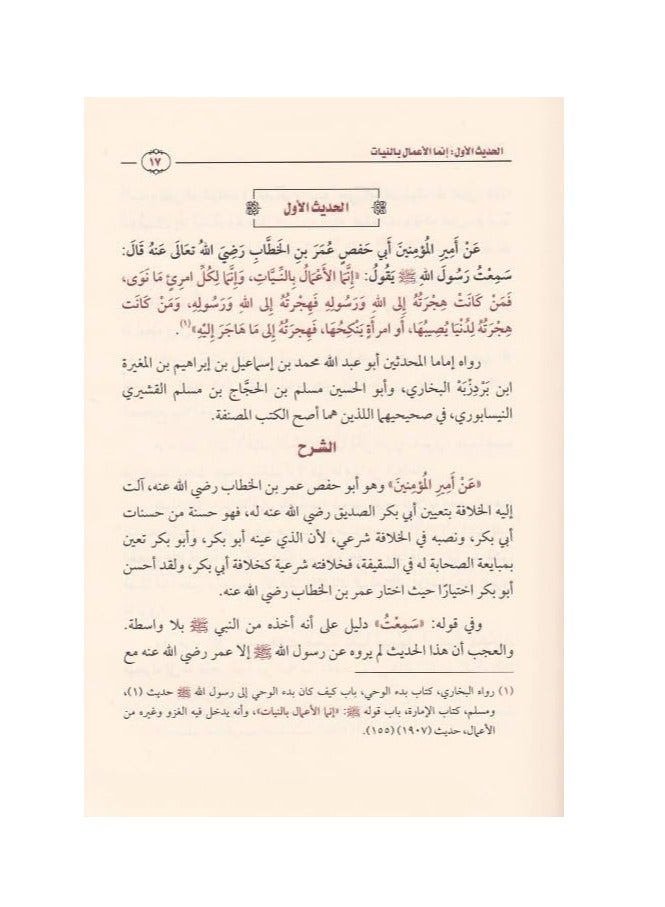 الحديث الأول: إنما الأعمال بالنيات
١٧
الحديث الأول
عَنْ أَمِيرِ المُؤْمِنِينَ أَبِي حَفصٍ عُمَرَ بنِ الخَطَّابِ رَضِيَ اللهُ تَعَالَى عَنهُ قَالَ:
سَمِعْتُ رَسُولَ اللهِ ﷺ يَقُولُ: «إِنَّمَا الأَعْمَالُ بِالنِّيَّاتِ، وَإِنَّمَا لِكُلِّ امرِئٍ مَا نَوَى،
فَمَنْ كَانَتْ هِجْرَتُهُ إِلَى اللهِ وَرَسُولِهِ فَهِجْرَتُهُ إِلَى اللهِ وَرَسُولِهِ، وَمَنْ كَانَت
هِجْرَتُهُ لِدُنْيَا يُصِيبُهَا، أَو امرأَةٍ يَنْكِحُهَا، فَهِجرَتُهُ إِلَى مَا هَاجَرَ إِلَيْهِ»(١).
رواه إماما المحدثين أبو عبد الله محمد بن إسماعيل بن إبراهيم بن المغيرة
ابن بَرْدِزبَهْ البخاري، وأبو الحسين مسلم بن الحجَّاج بن مسلم القشيري
النيسابوري، في صحيحيهما اللذين هما أصح الكتب المصنفة.
الشرح
«عَنْ أَمِيرِ المُؤْمِنِينَ» وهو أبو حفص عمر بن الخطاب رضي الله عنه، آلت
إليه الخلافة بتعيين أبي بكر الصديق رضي الله عنه له، فهو حسنة من حسنات
أبي بكر، ونصبه في الخلافة شرعي، لأن الذي عينه أبو بكر، وأبو بكر تعين
بمبايعة الصحابة له في السقيفة، فخلافته شرعية كخلافة أبي بكر، ولقد أحسن
أبو بكر اختيارًا حيث اختار عمر بن الخطاب رضي الله عنه.
وفي قوله: «سَمِعْتُ» دليل على أنه أخذه من النبي ﷺ بلا واسطة.
والعجب أن هذا الحديث لم يروه عن رسول الله ﷺ إلا عمر رضي الله عنه مع
(١) رواه البخاري، كتاب بدء الوحي، باب كيف كان بدء الوحي إلى رسول الله ﷺ حديث (١)،
ومسلم، كتاب الإمارة، باب قوله ﷺ: «إنما الأعمال بالنيات»، وأنه يدخل فيه الغزو وغيره من
الأعمال، حديث (١٩٠٧) (١٥٥).